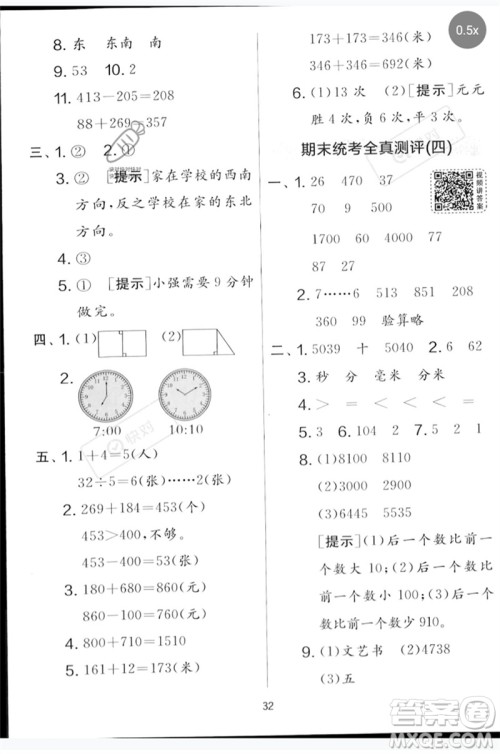 8. 东 东南 南
9. 53 10. 2
11. 413-205=208
88+269=357
三、1. ② 2. ①
3. ② [提示]家在学校的西南
方向,反之学校在家的东北
方向。
4. ③
5. ① [提示]小强需要9分钟
做完。
四、1. (1) (2)
2.
7:00 10:10
五、1. 1+4=5(人)
32÷5=6(张)……2(张)
2. 269+184=453(个)
453>400,不够。
453-400=53(张)
3. 180+680=860(张)
860-100=760(张)
4. 800+710=1510
5. 161+12=173(米)
173+173=346(米)
346+346=692(米)
6. (1)13次 (2)[提示]元元
胜4次,负6次,平3次。
期末统考全真测评(四)
一、1. 26 470 37
70 9 5000
1700 60 4000
87 27
视频讲答案
2. 7……6 513 838
360 99 验算略
二、1. 5039 十 5040 2. 6 62
3. 秒 分 毫米 分米
4. < = < < = >
5. 3 6. 104 7. 5 2 2 1
8. (1)8100 8110
(2)3500 3600
(3)6445 5535
[提示](1)后一个数比前一
个数大10;(2)后一个数比前
一个数小100;(3)后一个数
比前一个数少910。
9. (1)文艺书 (2)4738
(3)五
32
0.5x
快对
快对
答案圈
MXQE.COM